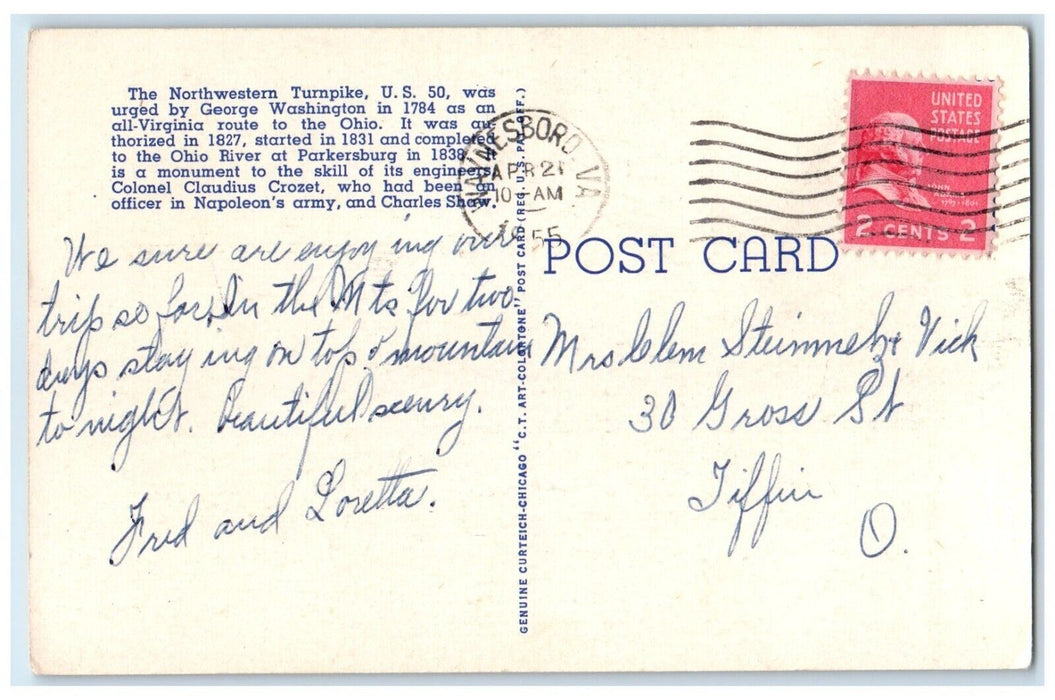 The Northwestern Turnpike, U.S. 50, was
urged by George Washington in 1784 as an
all-Virginia route to the Ohio. It was au-
thorized in 1827, started in 1831 and completed
to the Ohio River at Parkersburg in 1838. It
is a monument to the skill of its engineers,
Colonel Claudius Crozet, who had been an
officer in Napoleon's army, and Charles Shaw.
We sure are enjoying over
trip so far. In the Mts for two
days staying on top o' mountain
to night. beautiful scenry.
Fred and Loretta.
GENUINE CURTEICH-CHICAGO "C.T. ART-COLORTONE" POST CARD (REG. U.S. PAT. OFF.)
WAYNESBORO, VA
APR 21
10 - AM
1955
UNITED
STATES
POSTAGE
JOHN
2 CENTS 2
POST CARD
Mrs Clem Steinmetz Vick
30 Gross St
Tiffin
O.